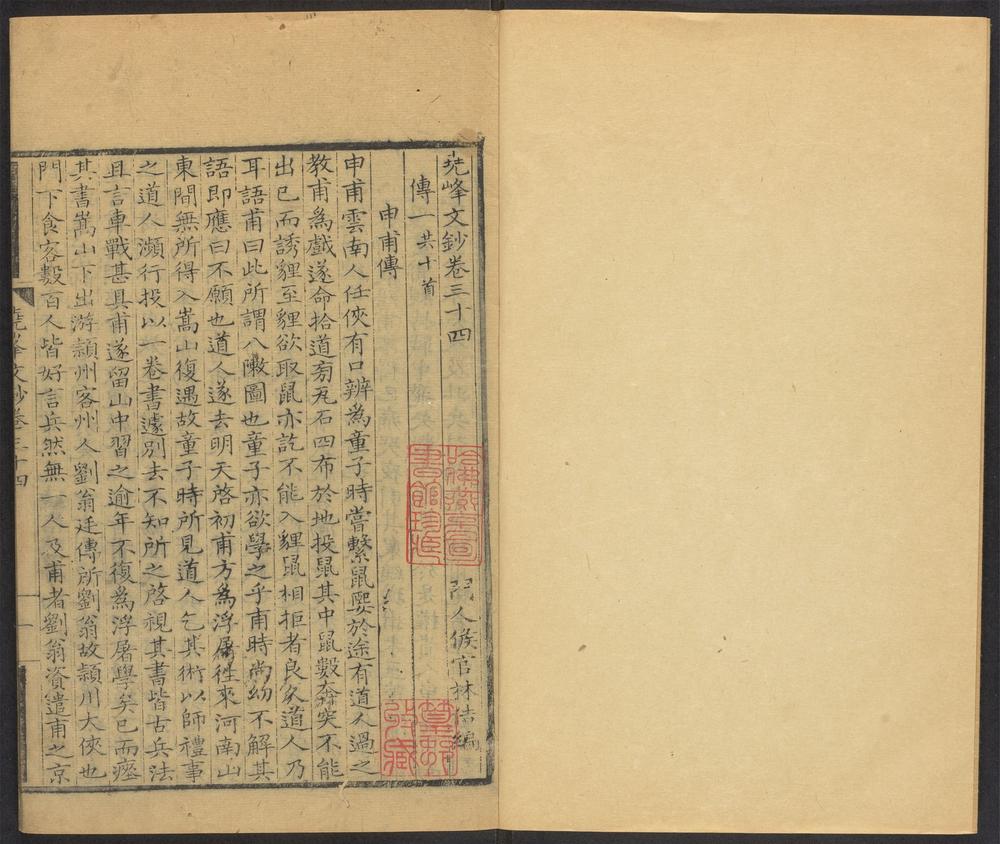 堯峰文鈔卷三十四
門人候官林佶編
傳一 共十首
申甫傳
申甫雲南人任俠有口辨為童子時嘗繫鼠嬰於途有道人過之
教甫為戲遂命拾道旁瓦石四布於地投鼠其中鼠數奔突不能
出已而誘貍至貍欲取鼠亦訖不能入貍鼠相拒者良久道人乃
耳語甫曰此所謂八陳圖也童子亦欲學之乎甫時尚幼不解其
語即應曰不願也道人遂去明天啓初甫方為浮屠往來河南山
東間無所得入嵩山復遇故童子時所見道人乞其術以師禮事
之道人瀕行投以一卷書遽別去不知所之啓視其書皆古兵法
且言車戰甚具甫遂留山中習之逾年不復為浮屠學矣已而瘞
其書嵩山下出游潁州客州人劉翁廷傳所劉翁故潁川大俠也
門下食客數百人皆好言兵然無一人及甫者劉翁資遣甫之京
堯峰文鈔卷三十四
一
哈佛燕京圖書館珍藏